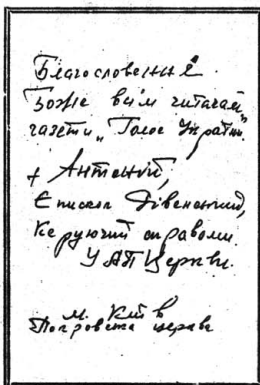 Благословення
Боже всім читачам
газети „Голос України".
+ Антоній,
Єпископ Рівненський,
Керуючий справами
УАПЦеркви.
м. Київ
Покровська церква